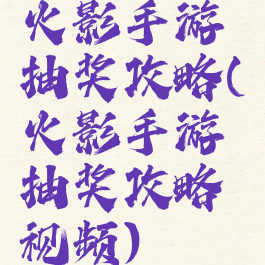 火影手游
抽奖攻略(
火影手游
抽奖攻略
视频)